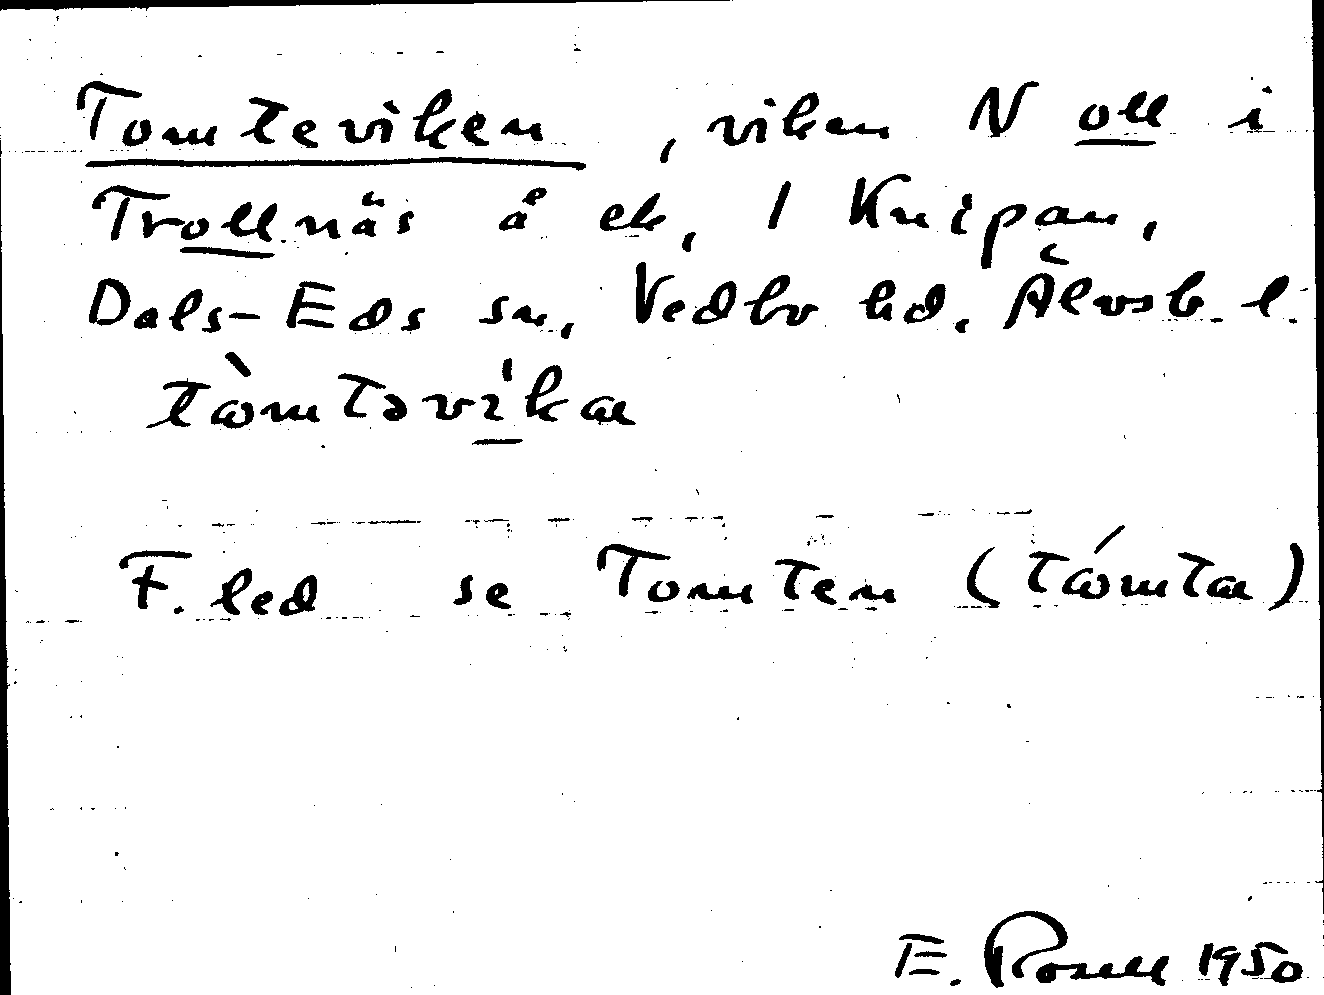 Tomteviken, viken N oll i
Trollnäs å ek, 1 Knipan,
Dals-Eds sn, Vedbo hd. Älvsb. l.
tò̤mtəvi̱ka
F. led se Tomten (tómta)
E. Rosell 1950